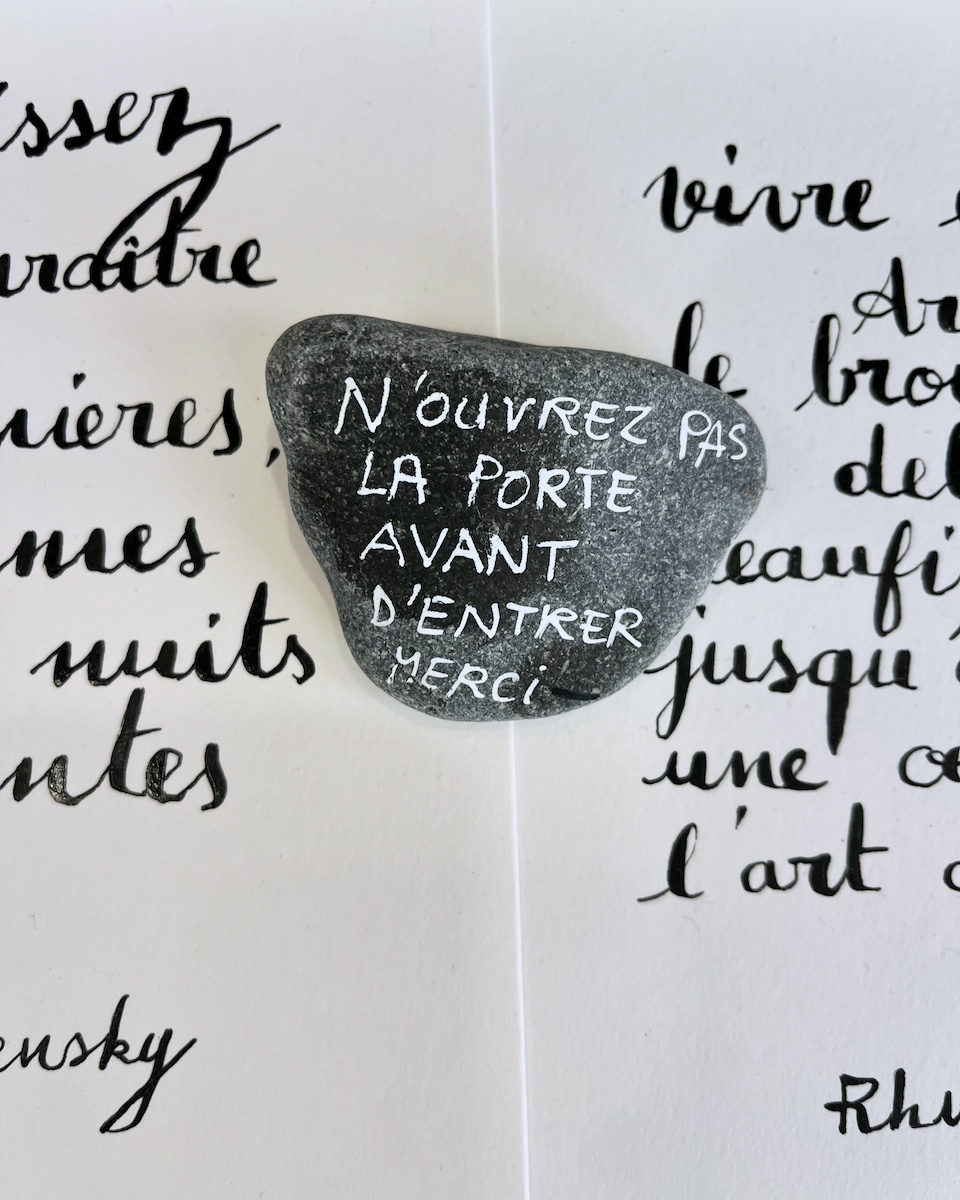 ssez
raître
nieres,
mes
nuits
ntes
ensky
N'OUVREZ PAS
LA PORTE
AVANT
D'ENTRER
MERCi
vivre
Ar
le brou
del
eaufi
jusqu'
une
l'art
Rhu